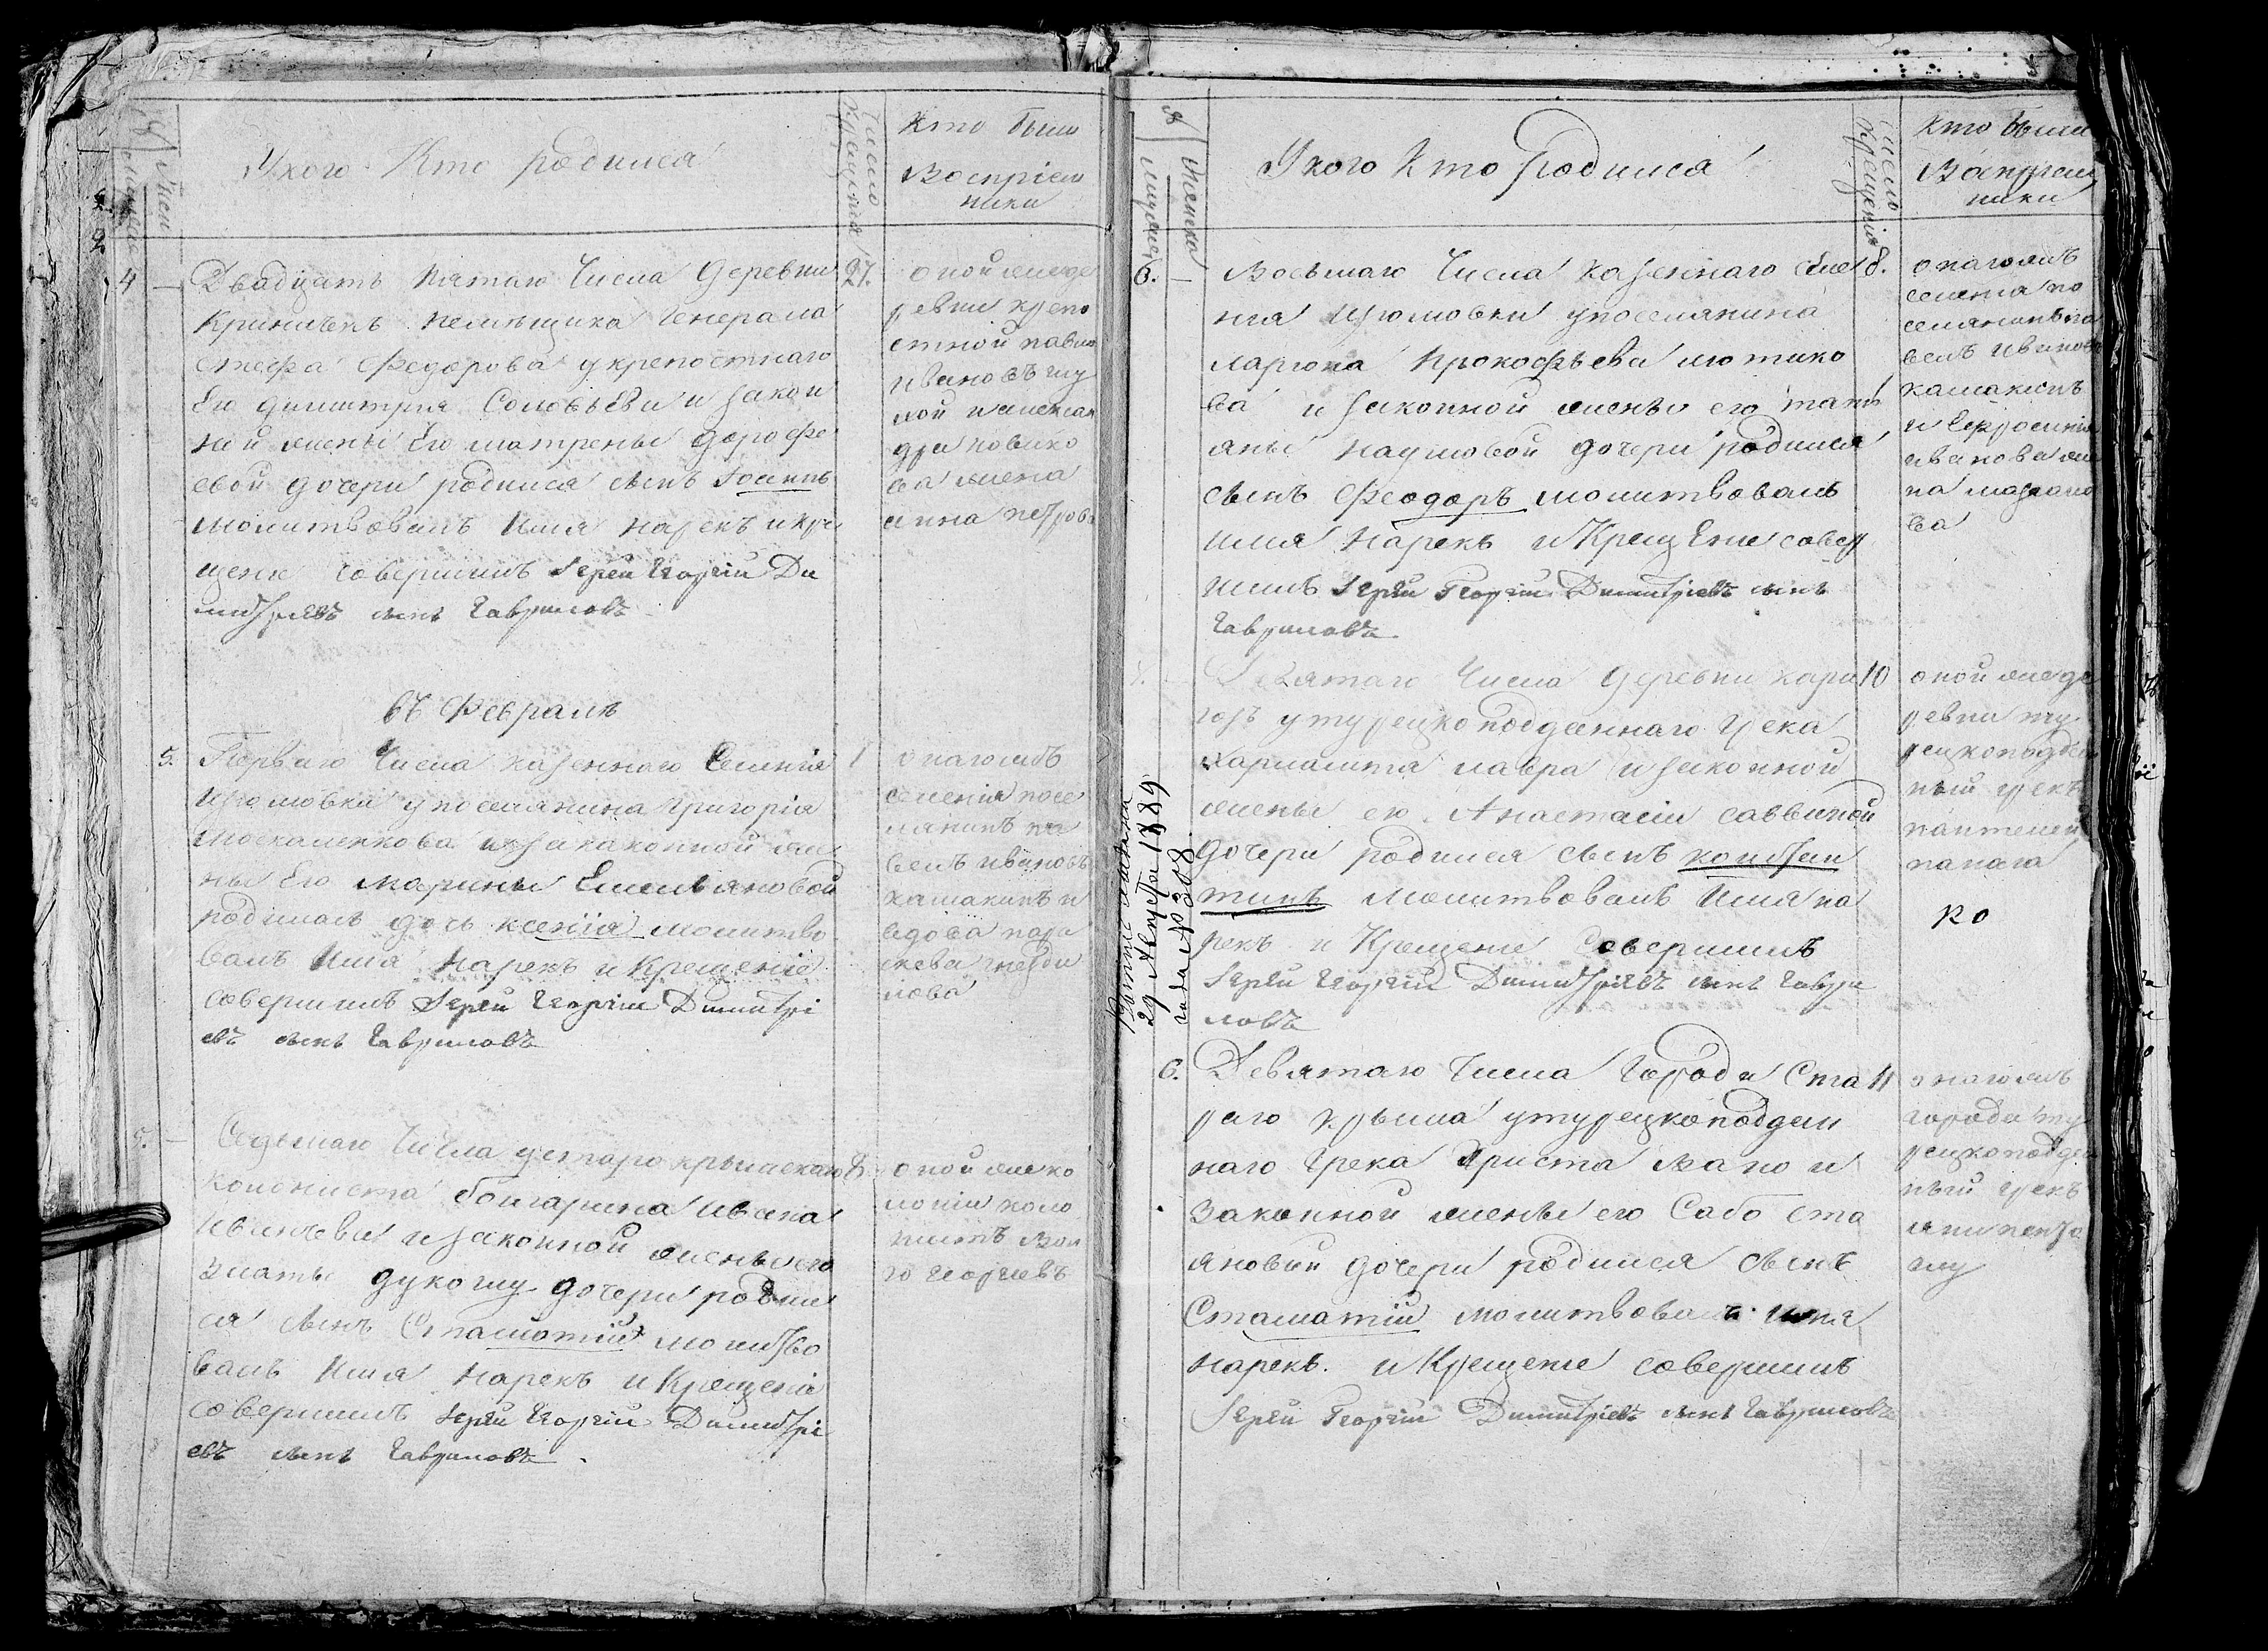 У кого Кто родился
Число Крещенія
Кто были
Воспріем
ники
4
Двадцать пятаго Числа деревни
27.
помѣщика Генерала
Федорова у крепостнаго
Его Димитрия Соловьева и закон
ной жены Его Матрены Дорофе
евой дочери родился сынъ Іоаннъ
молитвовалъ Имя нарекъ и кре
щение совершилъ Іерей Георгій Ди
митріевъ сынъ Гавриловъ
оной же де
ревни крепо
стной
Ивановъ
лой и Алексан
дра Новико
ва жена
Анна Петрова
въ Февралѣ
5.
Перваго Числа казеннаго Селенія
1
Изюмовки у поселянина Григорія
Москаленкова и законной же
ны Его Марины Емельяновой
родилась дочь Ксенія молитво
валъ Имя Нарекъ и Крещеніе
совершилъ Іерей Георгій Димитрі
евъ сынъ Гавриловъ
онагожъ
селенія посе
лянинъ па
велъ Ивановъ
Камакинъ и
вдова Пара
скева Гнезди
лова
5.
Седьмаго Числа у старокрымскаго
8
колониста болгарина Ивана
Ивичева и законной жены его
Златы дочери родил
ся сынъ Стаматій молитво
валъ Имя Нарекъ и Крещеніе
совершилъ Іерей Георгій Димитрі
евъ сынъ Гавриловъ.
оной же ко
лоніи коло
нистъ Вол
го Георгиевъ
Женска
У кого Кто Родился
Число Крещенія
Кто были
Восприем
ники
6.
Восьмаго Числа казеннаго селе
8.
ния Изюмовки у поселянина
Лариона Прокофьева Лютико
ва и законной жены его Тать
яны Наумовой дочери родился
сынъ Феодоръ молитвовалъ
имя Нарекъ и Крещение совер
шилъ Іерей Георгій Димитріевъ сынъ
Гавриловъ
онагожъ
селения по
селянинъ Па
велъ Ивановъ
Камакинъ
и Ефросиния
Иванова же
на
ва
Девятаго Числа деревни Кара
10
гозъ у турецкоподданнаго Грека
Харлампия Лавра и законной
жены его Анастасіи Саввиной
дочери родился сынъ Констан
тинъ молитвовалъ Имя на
рекъ и Крещение совершилъ
Іерей Георгій Димитріевъ сынъ Гаври
ловъ
оной же де
ревни ту
рецкоподдан
ный грекъ
Пантелей
Папага
ко
29 Августа 1889
года № 308
6.
Девятаго Числа Города Ста
11
раго Крыма у турецкоподдан
наго Грека Христа Вано и
Законной жены его Сабо Ста
яновой дочери родился сынъ
Стаматій молитвовалъ имя
нарекъ. и Крещение совершилъ
Іерей Георгій Димитріевъ сынъ Гавриловъ
онагожъ
города ту
рецкоподдан
ный грекъ